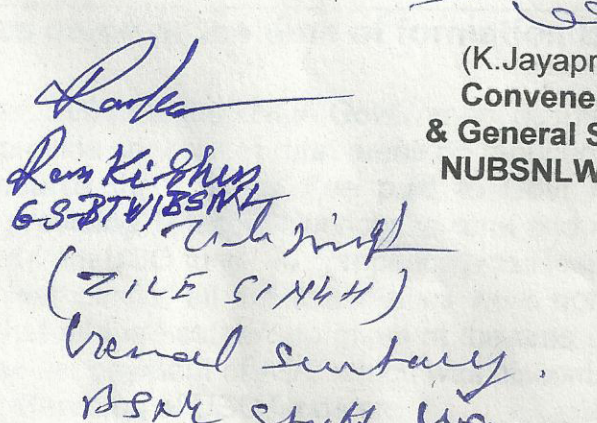 (K.Jayapr
Convene
& General S
NUBSNLW
Ram Kishan
GS-BTU/BSNL
Zile Singh
(ZILE SINGH)
General Secretary.
BSNL Staff